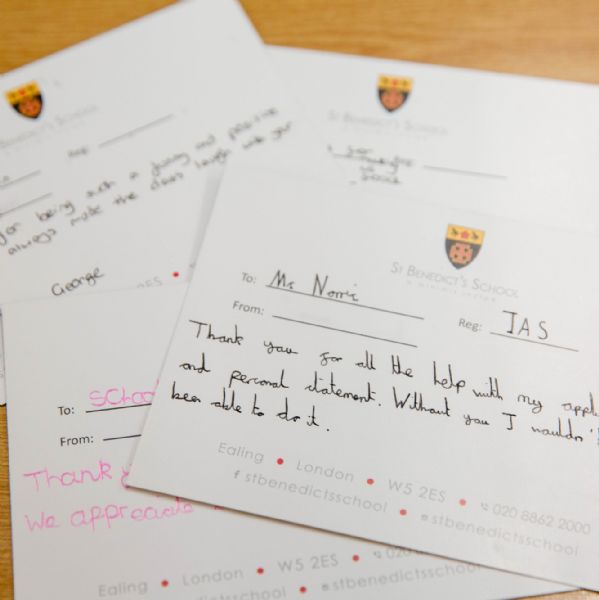 St Benedict's School
Reg:
for being such a funny and positive
always make the class laugh with your
George
St Benedict's School
St Benedict's School
A MINIMIS INCIPE
To: Mr Norris
From:
Reg: IAS
Thank you for all the help with my appli
and personal statement. Without you I wouldn'
been able to do it.
Ealing • London • W5 2ES • 020 8862 2000
stbenedictsschool • stbenedictsschool
To: School
From:
Thank
We appreciate
Ealing • London • W5 2ES • 020
stbenedictsschool